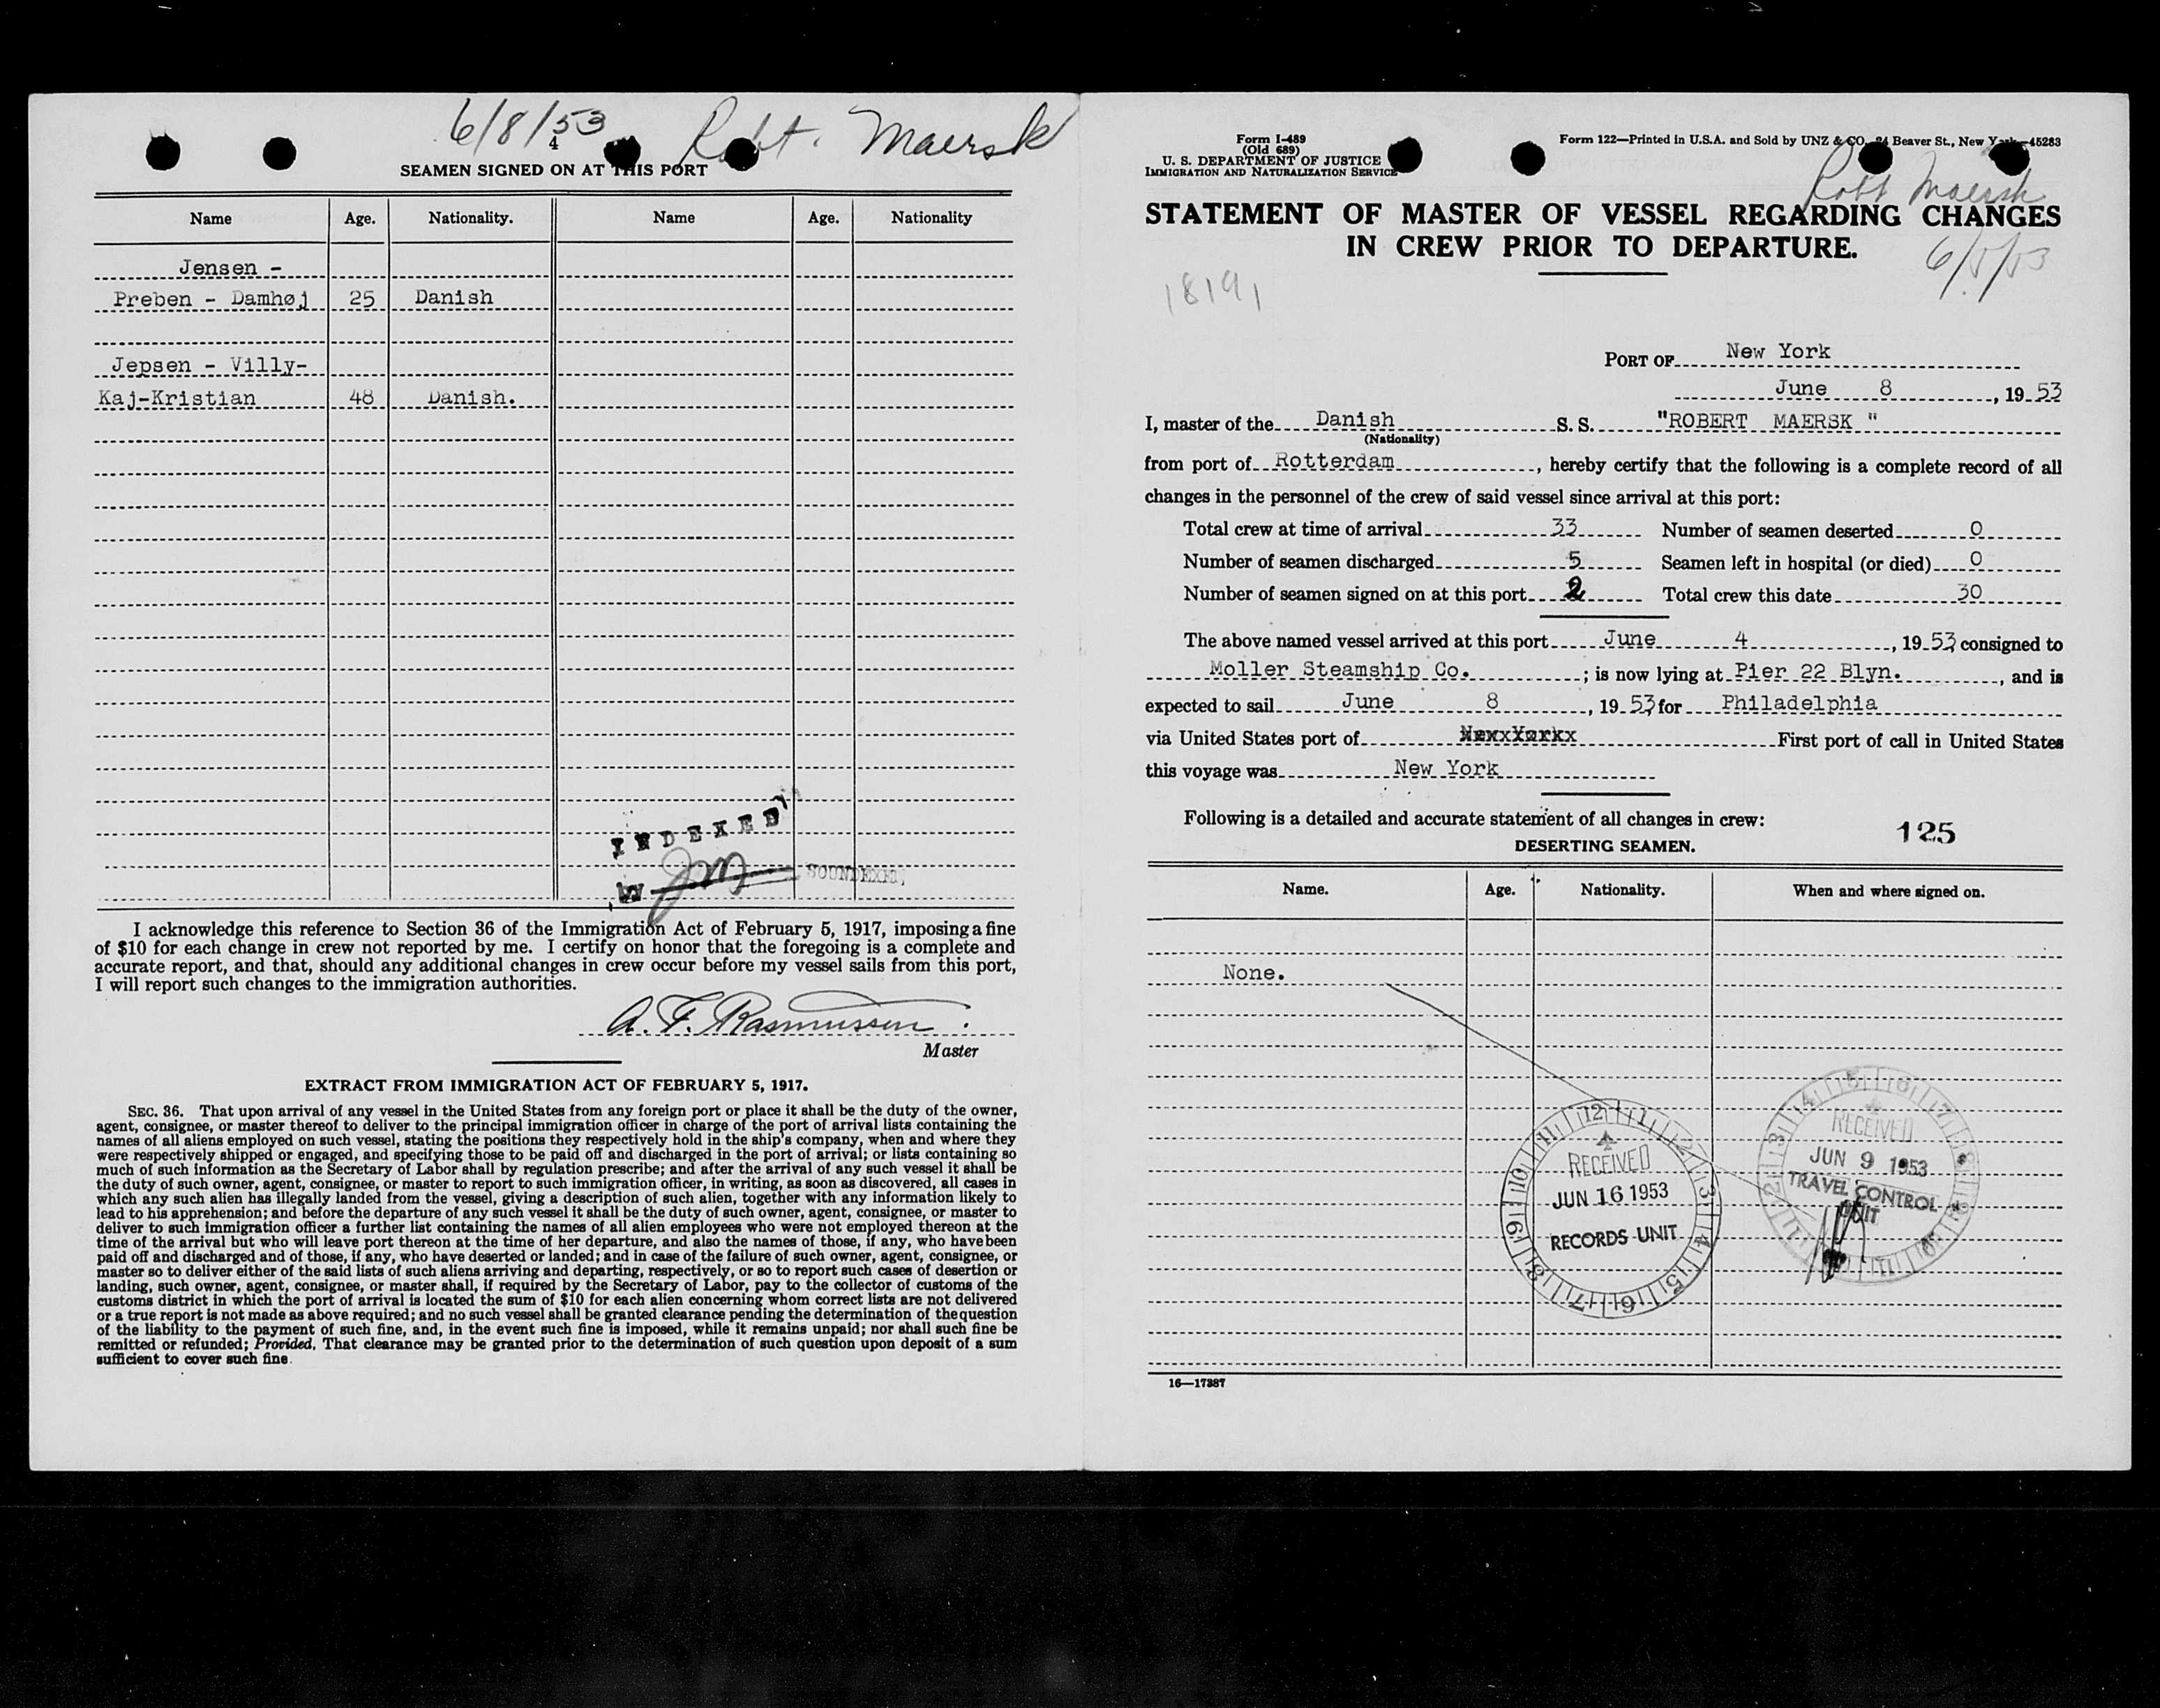 6/8/53 Robt. Maersk
4
SEAMEN SIGNED ON AT THIS PORT
Name Age. Nationality. Name Age. Nationality
Jensen -
Preben - Damhøj 25 Danish
Jepsen - Villy-
Kaj-Kristian 48 Danish.
INDEXED
by JM SOUNDEXED
I acknowledge this reference to Section 36 of the Immigration Act of February 5, 1917, imposing a fine
of $10 for each change in crew not reported by me. I certify on honor that the foregoing is a complete and
accurate report, and that, should any additional changes in crew occur before my vessel sails from this port,
I will report such changes to the immigration authorities.
A. F. Rasmussen.
Master
EXTRACT FROM IMMIGRATION ACT OF FEBRUARY 5, 1917.
SEC. 36. That upon arrival of any vessel in the United States from any foreign port or place it shall be the duty of the owner,
agent, consignee, or master thereof to deliver to the principal immigration officer in charge of the port of arrival lists containing the
names of all aliens employed on such vessel, stating the positions they respectively hold in the ship's company, when and where they
were respectively shipped or engaged, and specifying those to be paid off and discharged in the port of arrival; or lists containing so
much of such information as the Secretary of Labor shall by regulation prescribe; and after the arrival of any such vessel it shall be
the duty of such owner, agent, consignee, or master to report to such immigration officer, in writing, as soon as discovered, all cases in
which any such alien has illegally landed from the vessel, giving a description of such alien, together with any information likely to
lead to his apprehension; and before the departure of any such vessel it shall be the duty of such owner, agent, consignee, or master to
deliver to such immigration officer a further list containing the names of all alien employees who were not employed thereon at the
time of the arrival but who will leave port thereon at the time of her departure, and also the names of those, if any, who have been
paid off and discharged and of those, if any, who have deserted or landed; and in case of the failure of such owner, agent, consignee, or
master so to deliver either of the said lists of such aliens arriving and departing, respectively, or so to report such cases of desertion or
landing, such owner, agent, consignee, or master shall, if required by the Secretary of Labor, pay to the collector of customs of the
customs district in which the port of arrival is located the sum of $10 for each alien concerning whom correct lists are not delivered
or a true report is not made as above required; and no such vessel shall be granted clearance pending the determination of the question
of the liability to the payment of such fine, and, in the event such fine is imposed, while it remains unpaid; nor shall such fine be
remitted or refunded; Provided, That clearance may be granted prior to the determination of such question upon deposit of a sum
sufficient to cover such fine.
Form I-489
(Old 689)
U. S. DEPARTMENT OF JUSTICE
IMMIGRATION AND NATURALIZATION SERVICE
Form 122—Printed in U.S.A. and Sold by UNZ & CO., 24 Beaver St., New York—45283
Robt Maersk
STATEMENT OF MASTER OF VESSEL REGARDING CHANGES
IN CREW PRIOR TO DEPARTURE.
18191
PORT OF New York
June 8, 19 53
I, master of the Danish S. S. "ROBERT MAERSK "
(Nationality)
from port of Rotterdam, hereby certify that the following is a complete record of all
changes in the personnel of the crew of said vessel since arrival at this port:
Total crew at time of arrival 33 Number of seamen deserted 0
Number of seamen discharged 5 Seamen left in hospital (or died) 0
Number of seamen signed on at this port 2 Total crew this date 30
The above named vessel arrived at this port June 4, 19 53 consigned to
Moller Steamship Co. ; is now lying at Pier 22 Blyn., and is
expected to sail June 8, 19 53 for Philadelphia
via United States port of First port of call in United States
this voyage was New York
Following is a detailed and accurate statement of all changes in crew:
125
DESERTING SEAMEN.
Name. Age. Nationality. When and where signed on.
None.
RECEIVED
JUN 16 1953
RECORDS UNIT
RECEIVED
JUN 9 1953
TRAVEL CONTROL
UNIT
16—17387